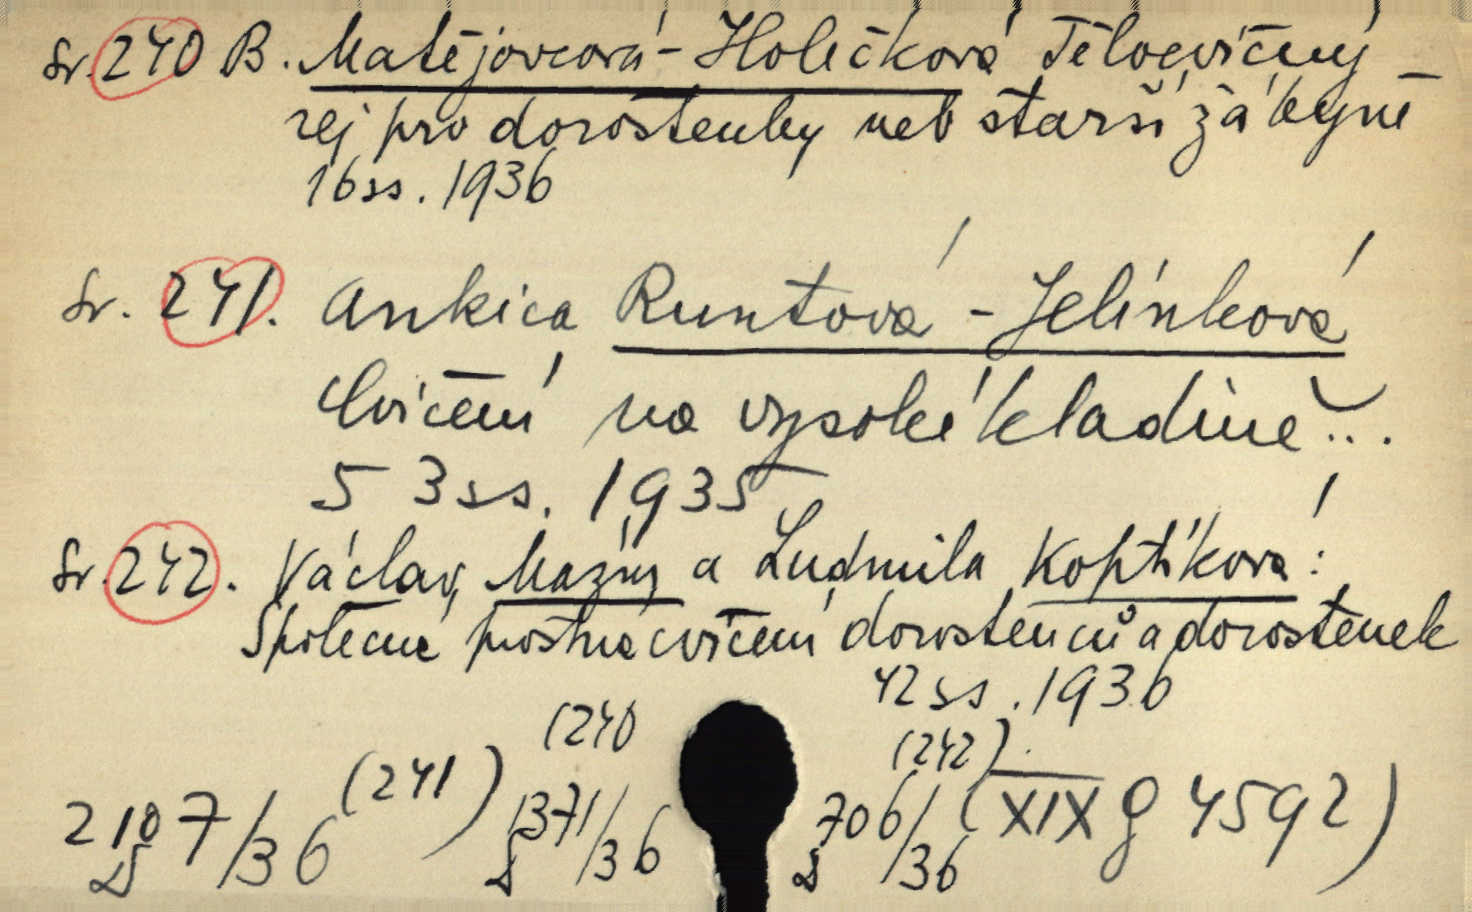 Sv. 240 B. Matějovcová-Holečková Tělocvičný
rej pro dorostenky neb starší žákyně
16 ss. 1936
Sv. 241. Ankica Runtová-Jelínková
Cvičení na vysoké kladině...
53 ss. 1935
Sv. 242. Václav Mazný a Ludmila Koptíková:
Společné prostné cvičení dorostenců a dorostenek
42 ss. 1936
(241) (240 (242)
2107/36 1371/36 706/36 (XIX g 4592)